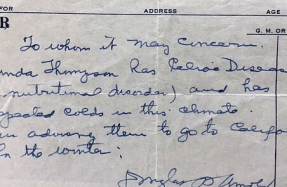 FOR ADDRESS AGE
B G. M. OR
To whom it may concern.
nda Thompson has Celiac Diseas
nutritional disorder) and has
epeated colds in this climate.
am advising them to go to Califo
in the winter.